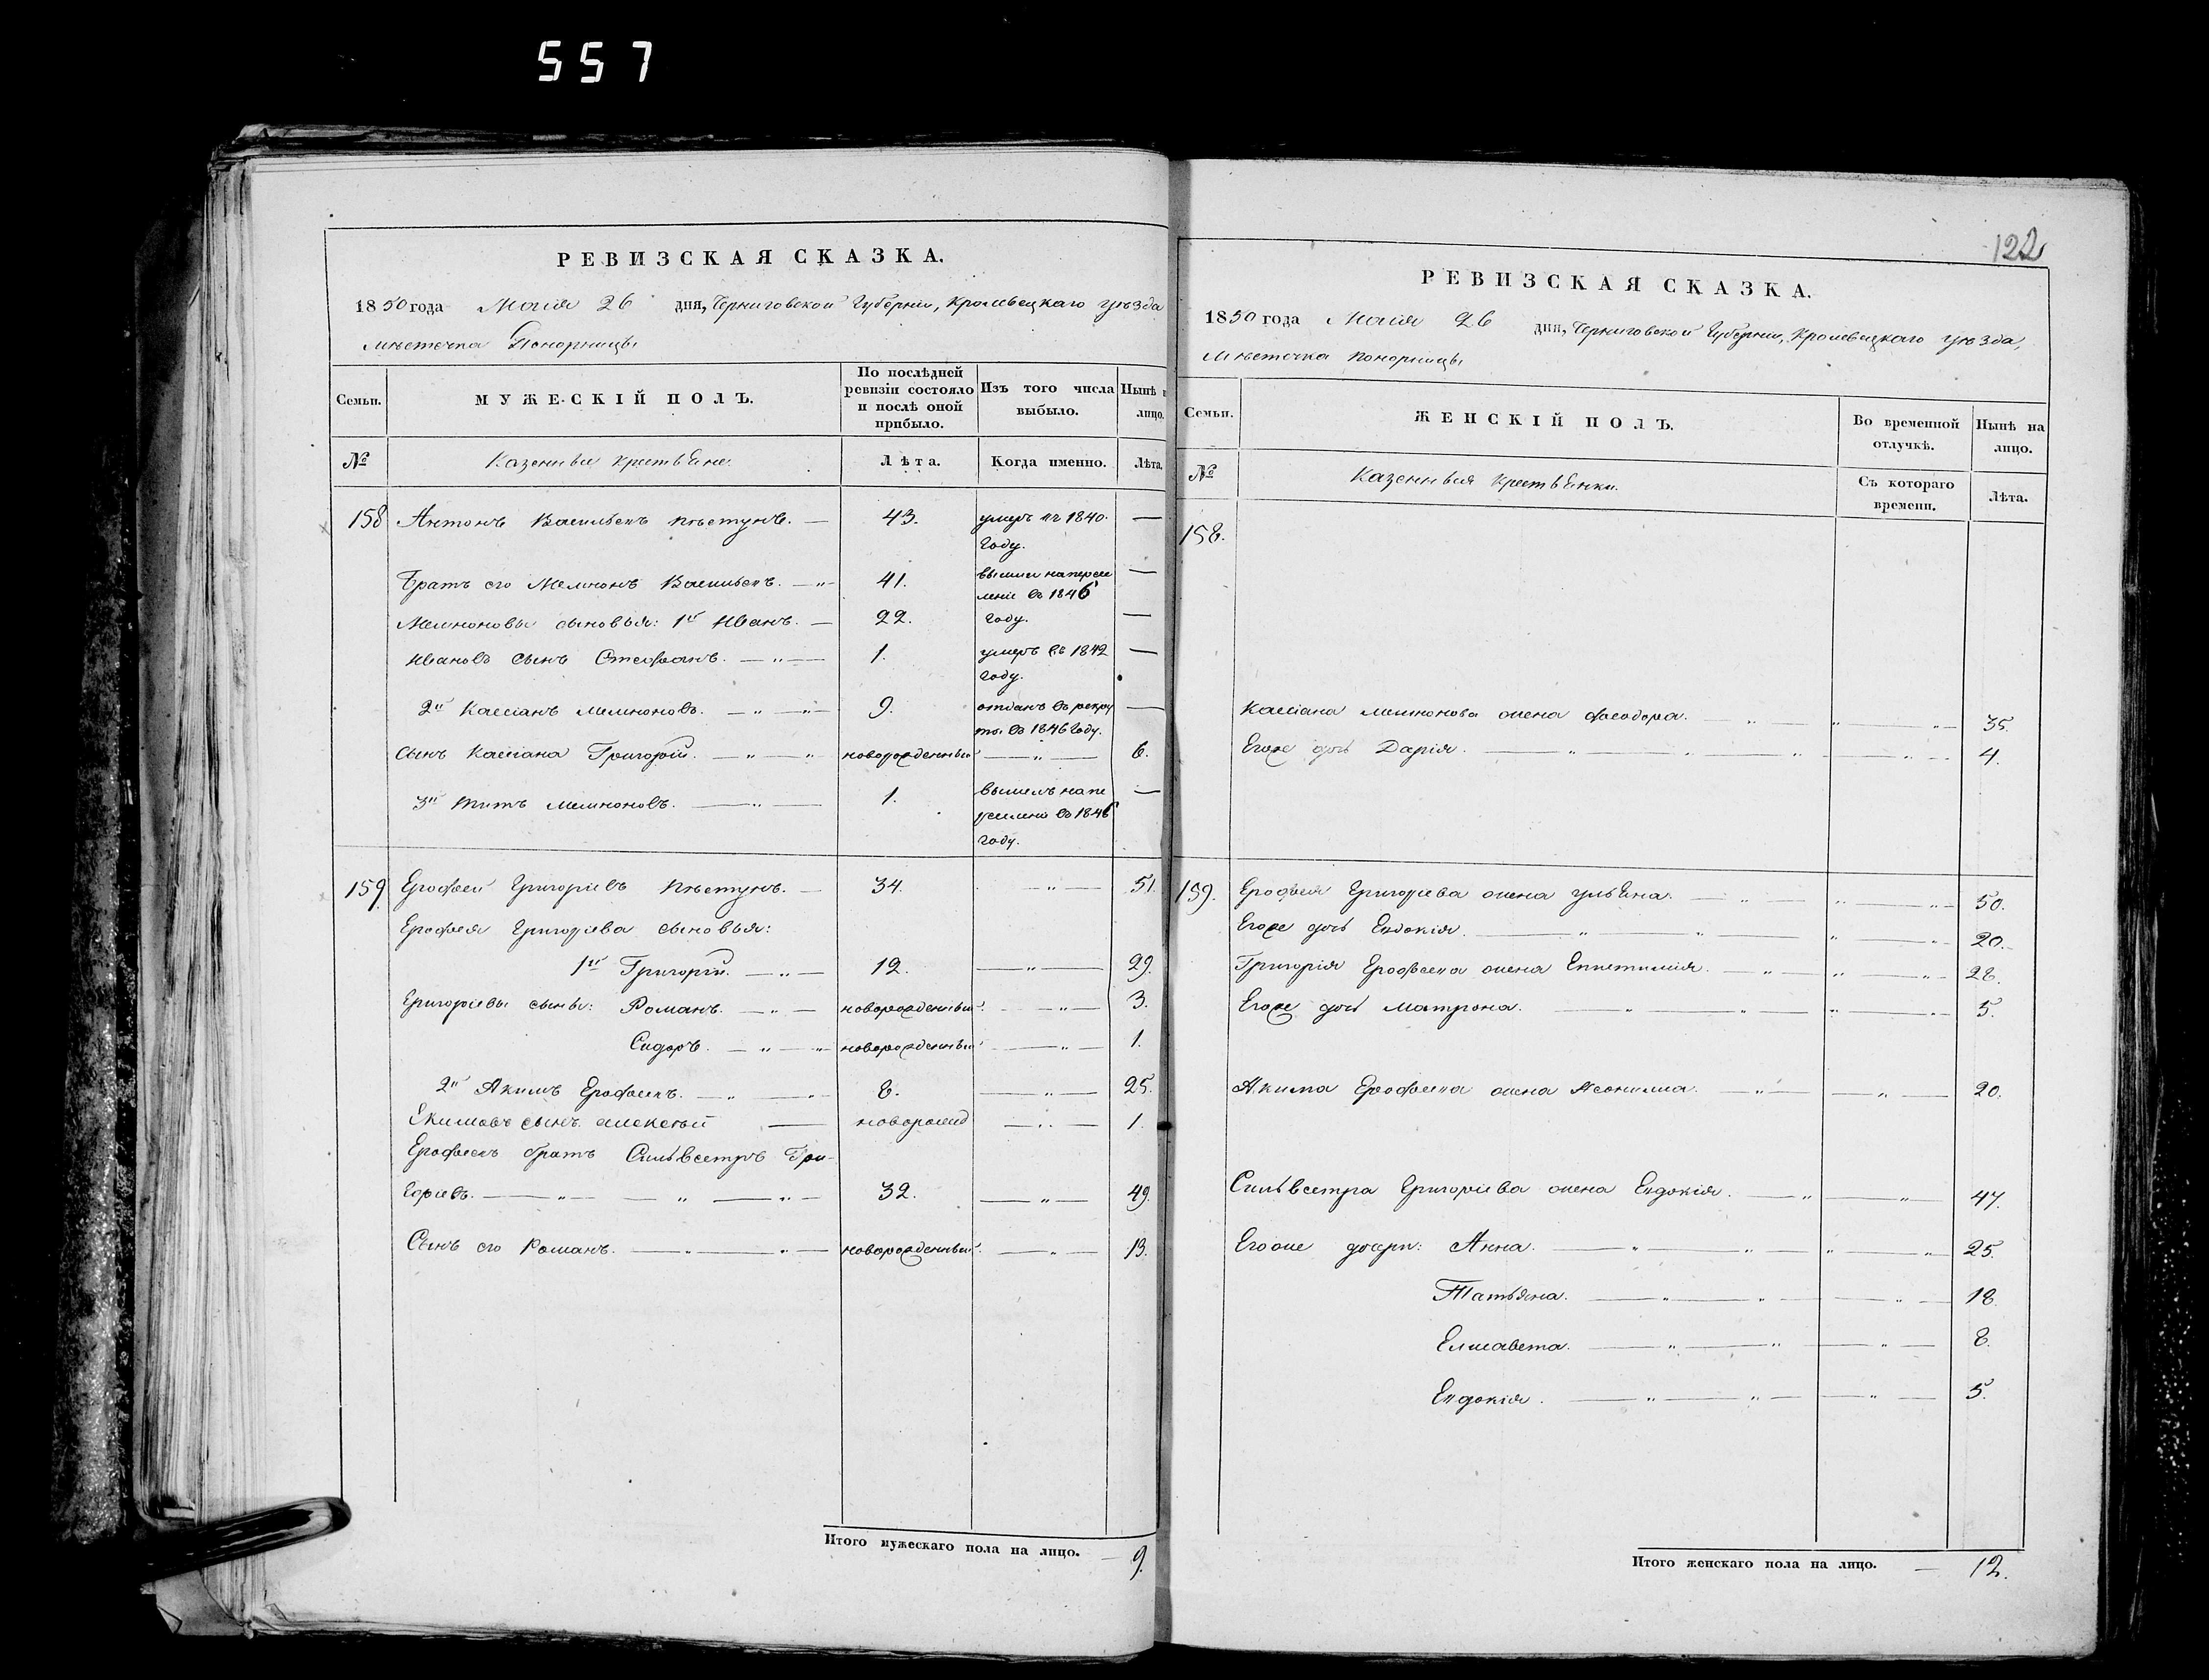 557
РЕВИЗСКАЯ СКАЗКА.
1850 года Маія 26 дня, Черниговской Губерніи, Кролевецкаго уѣзда
мѣстечка Понорницы
Семьи. МУЖЕСКІЙ ПОЛЪ. По послѣдней ревизіи состояло и послѣ оной прибыло. Изъ того числа выбыло. Нынѣ н лицо.
№ Казенные крестьяне. Лѣта. Когда именно. Лѣта.
158 Антонъ Васильевъ Пѣстунъ. — 43. умеръ въ 1840 —
году.
Братъ его Мемнонъ Васильевъ. — 41. вышли на пересе —
леніе въ 1846
Мемноновы сыновья: 1й Иванъ. — 22. году. —
Ивановъ сынъ Стефанъ. — 1. умеръ въ 1842 —
году.
2й Кассіанъ Мемноновъ. — 9. отданъ въ рекру —
ты въ 1846 году.
Сынъ Кассіана Григорій. — новорожденный — 6.
3й Титъ Мемноновъ. — 1. вышелъ на пе —
реселеніе въ 1846
году.
159 Ерофей Григорьевъ Пѣстунъ. — 34. — 51.
Ерофея Григорьева сыновья:
1й Григорій. — 12. — 29.
Григорьевы сыны: Романъ. — новорожденный — 3.
Сидоръ. — новорожденный — 1.
2й Акимъ Ерофеевъ. — 8. — 25.
Екимовъ сынъ Алексѣй — новорожд — 1.
Ерофеевъ братъ Сильвестръ Гри-
горьевъ. — 32. — 49.
Сынъ его Романъ. — новорожденный. — 13.
Итого мужескаго пола на лицо. — 9.
122
РЕВИЗСКАЯ СКАЗКА.
1850 года Маія 26 дня, Черниговской Губерніи, Кролевецкаго уѣзда,
мѣстечка Понорницы
Семьи. ЖЕНСКІЙ ПОЛЪ. Во временной отлучкѣ. Нынѣ на лицо.
№ Казенныя крестьянки. Съ котораго времени. Лѣта.
158.
Кассіана Мемнонова жена Феодора. — 35.
Егоже дочь Дарія. — 4.
159. Ерофея Григорьева жена Ульяна. — 50.
Егоже дочь Евдокія. — 20.
Григорія Ерофеева жена Епистимія. — 28.
Егоже дочь Матрона. — 5.
Акима Ерофеева жена — 20.
Сильвестра Григорьева жена Евдокія. — 47.
Егоже дочери: Анна. — 25.
Татьяна. — 18.
Елисавета. — 8.
Евдокія. — 5.
Итого женскаго пола на лицо. — 12.